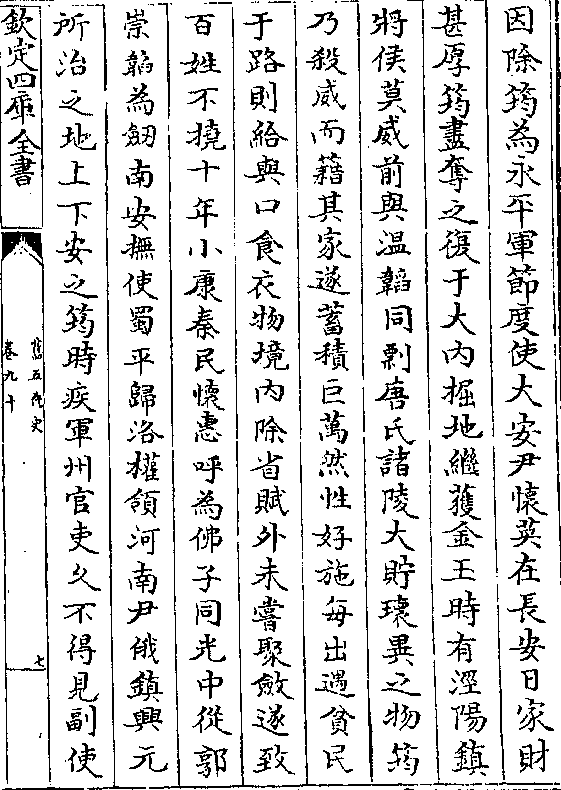 因除筠為永平軍節度使大安尹懷英在長安日家財
甚厚筠盡奪之復于大内掘地繼獲金玉時有涇陽鎮
將侯莫威前與温韜同剽唐氏諸陵大貯瓌異之物筠
乃殺威而籍其家遂蓄積巨萬然性好施每出遇貧民
于路則給與口食衣物境内除省賦外未嘗聚斂遂致
百姓不撓十年小康秦民懷惠呼為佛子同光中從郭
崇韜為劒南安撫使蜀平歸洛權領河南尹俄鎮興元
所治之地上下安之筠時疾軍州官吏久不得見副使
欽定四庫全書
舊五代史
卷九十
七